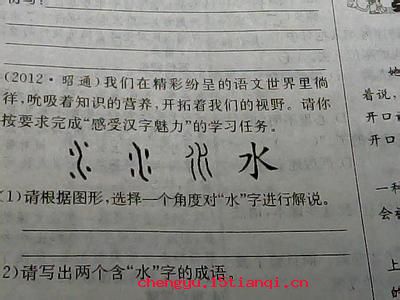 (2012·昭通)我们在精彩纷呈的语文世界里徜
徉,吮吸着知识的营养,开拓着我们的视野。请你
按要求完成“感受汉字魅力”的学习任务。
水
(1)请根据图形,选择一个角度对“水”字进行解说。
2)请写出两个含“水”字的成语。
着说,
开口
开口
一种
会
上
chengyu.15tianqi.cn